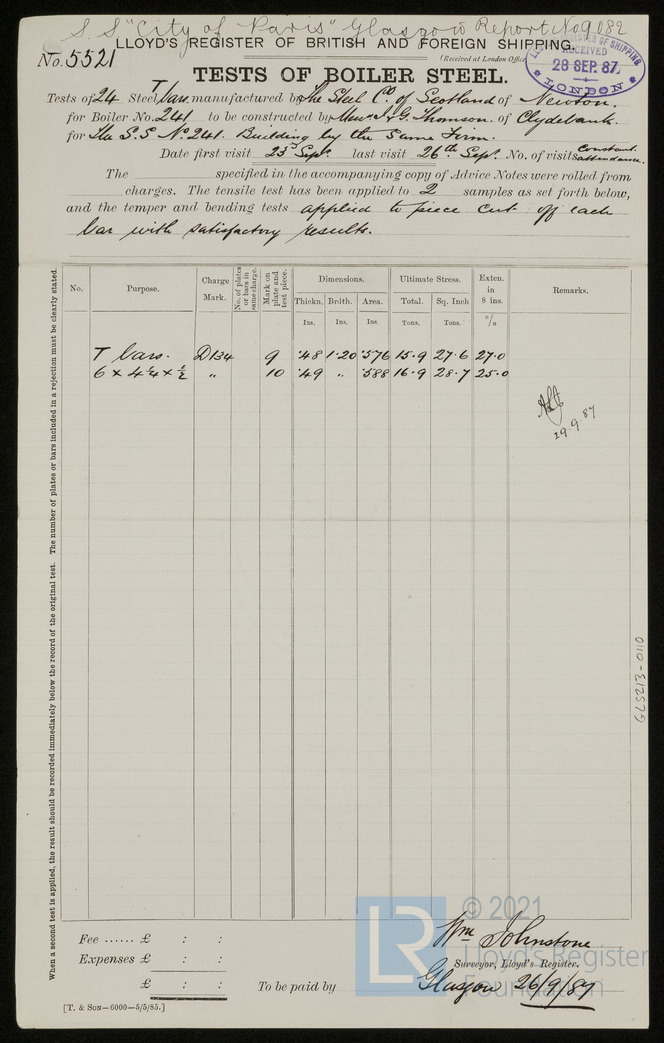 S.S "City of Paris" Glasgow Report No 9082
LLOYD'S REGISTER OF BRITISH AND FOREIGN SHIPPING.
No. 5521
(Received at London Office
RECEIVED
28 SEP. 87
LONDON
TESTS OF BOILER STEEL.
Tests of 24 Steel T bars manufactured by The Steel Co. of Scotland of Newton.
for Boiler No. 241 to be constructed by Messrs J & G. Thomson. of Clydebank.
for The S.S No. 241. Building by the Same Firm.
Date first visit 23rd Sept. last visit 26th Sept. No. of visits Constant attendance.
The specified in the accompanying copy of Advice Notes were rolled from
charges. The tensile test has been applied to 2 samples as set forth below,
and the temper and bending tests applied to piece cut off each
bar with satisfactory results.
No. Purpose. Charge Mark. No. of plates or bars in same charge. Mark on plate and test piece. Dimensions. Ultimate Stress. Exten. in 8 ins. Remarks.
Thickn. Brdth. Area. Total. Sq. Inch
Ins. Ins. Ins. Tons. Tons. %
T bars. D134 9 .48 1.20 .576 15.9 27.6 27.0
6 x 4¼ x ½ " 10 .49 " .588 16.9 28.7 25.0
29.9.87
When a second test is applied, the result should be recorded immediately below the record of the original test. The number of plates or bars included in a rejection must be clearly stated.
GLS213-0110
Fee ...... £ : :
Expenses £ : :
£ : :
To be paid by
Wm Johnstone
Surveyor, Lloyd's Register.
Glasgow 26/9/87
[T. & SON—6000—5/5/85.]
© 2021
LR
Lloyd's Register
Foundation